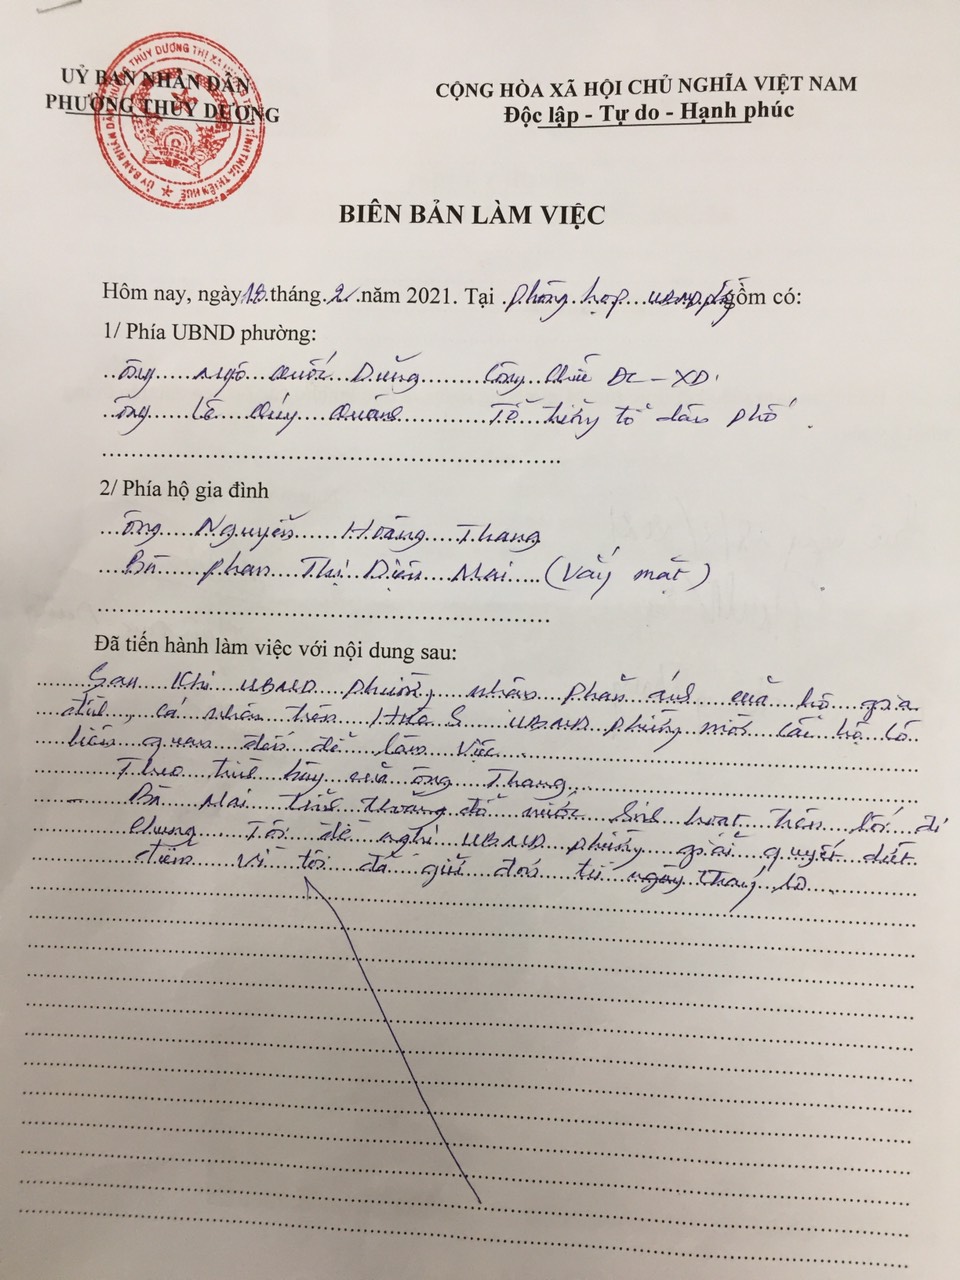 UỶ BAN NHÂN DÂN
PHƯỜNG THỦY DƯƠNG
CỘNG HÒA XÃ HỘI CHỦ NGHĨA VIỆT NAM
Độc lập - Tự do - Hạnh phúc
BIÊN BẢN LÀM VIỆC
Hôm nay, ngày 18 tháng 2 năm 2021. Tại phòng họp UBND phường gồm có:
1/ Phía UBND phường:
Ông Ngô Quốc Dũng Công chức ĐC - XD
Ông Lê Quý Quảng Tổ trưởng tổ dân phố
2/ Phía hộ gia đình
Ông Nguyễn Hoàng Thang
Bà Phan Thị Diệu Mai (Vắng mặt)
Đã tiến hành làm việc với nội dung sau:
Sau khi UBND phường nhận phản ánh của hộ gia
đình, cá nhân trên Hue S UBND phường mời các hộ có
liên quan đến để làm việc.
Theo trình bày của ông Thang
Bà Mai thường đổ nước sinh hoạt trên lối đi
Chúng Tôi đề nghị UBND phường giải quyết dứt
điểm vì tôi đã gửi đơn từ ngày tháng 10